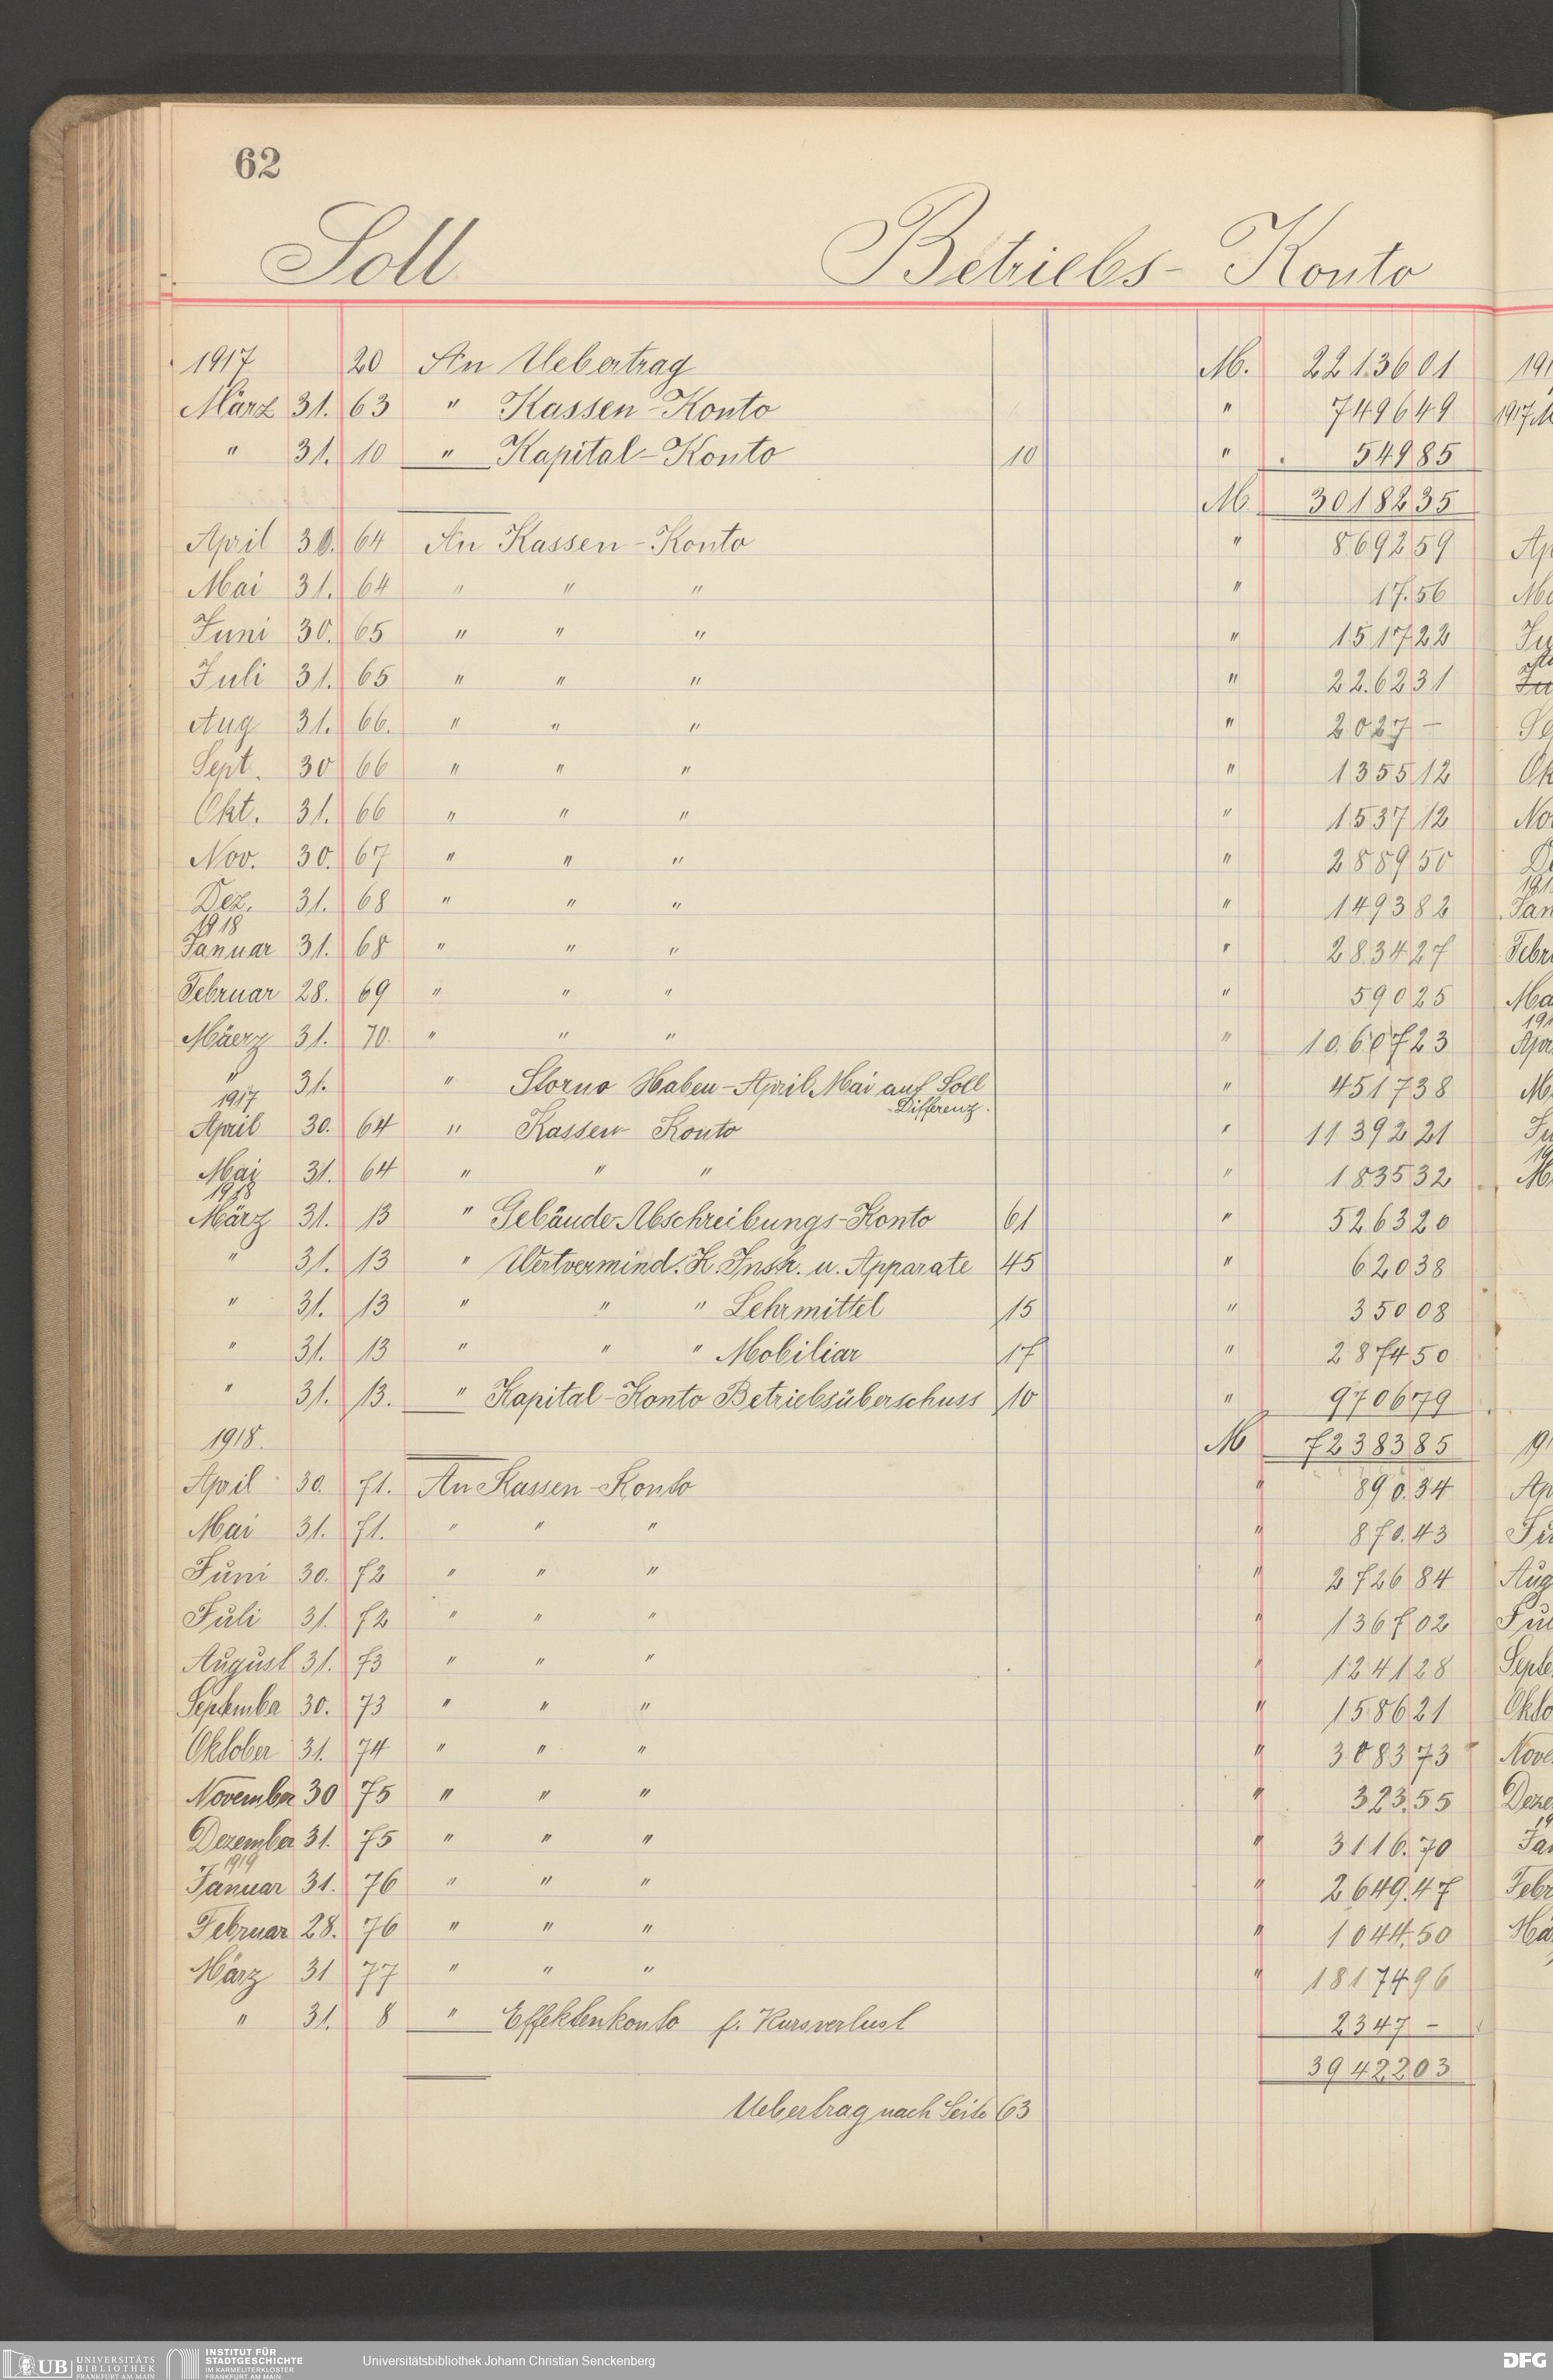 62
Soll Betriebs-Konto
1917 20 An Uebertrag M. 22136 01
März 31. 63 " Kassen-Konto " 7496 49
" 31. 10 " Kapital-Konto 10 " 549 85
M. 30182 35
April 30. 64 An Kassen-Konto " 8692 59
Mai 31. 64 " " " " 17.56
Juni 30. 65 " " " " 1517 22
Juli 31. 65 " " " " 2262 31
Aug 31. 66. " " " " 2027 –
Sept. 30 66 " " " " 1355 12
Okt. 31. 66 " " " " 1537 12
Nov. 30. 67 " " " " 2889 50
Dez. 31. 68 " " " " 1493 82
1918
Januar 31. 68 " " " " 2834 27
Februar 28. 69 " " " " 590 25
Mäerz 31. 70. " " " " 10607 23
" 31. " Storno Haben-April, Mai auf Soll " 4517 38
1917 -Differenz.
April 30. 64 " Kassen-Konto " 11392 21
Mai 31. 64 " " " " 1835 32
1918
März 31. 13 " Gebäude-Abschreibungs-Konto 61 " 5263 20
" 31. 13 " Wertvermind. K. Instr. u. Apparate 45 " 620 38
" 31. 13 " " " Lehrmittel 15 " 350 08
" 31. 13 " " " Mobiliar 17 " 2874 50
" 31. 13. " Kapital-Konto Betriebsüberschuss 10 " 9706 79
1918. M 72383 85
April 30. 71. An Kassen-Konto " 890.34
Mai 31. 71. " " " " 870.43
Juni 30. 72 " " " " 2726 84
Juli 31. 72 " " " " 1367 02
August 31. 73 " " " " 1241 28
September 30. 73 " " " " 1586 21
Oktober 31. 74 " " " " 3083 73
November 30 75 " " " " 323.55
Dezember 31. 75 " " " " 3116.70
1919
Januar 31. 76 " " " " 2649.47
Februar 28. 76 " " " " 1044.50
März 31 77 " " " " 18174 96
" 31. 8 " Effektenkonto f. Kursverlust 2347 –
39422 03
Uebertrag nach Seite 63
UB UNIVERSITÄTS BIBLIOTHEK FRANKFURT AM MAIN
INSTITUT FÜR STADTGESCHICHTE IM KARMELITERKLOSTER FRANKFURT AM MAIN
Universitätsbibliothek Johann Christian Senckenberg
DFG